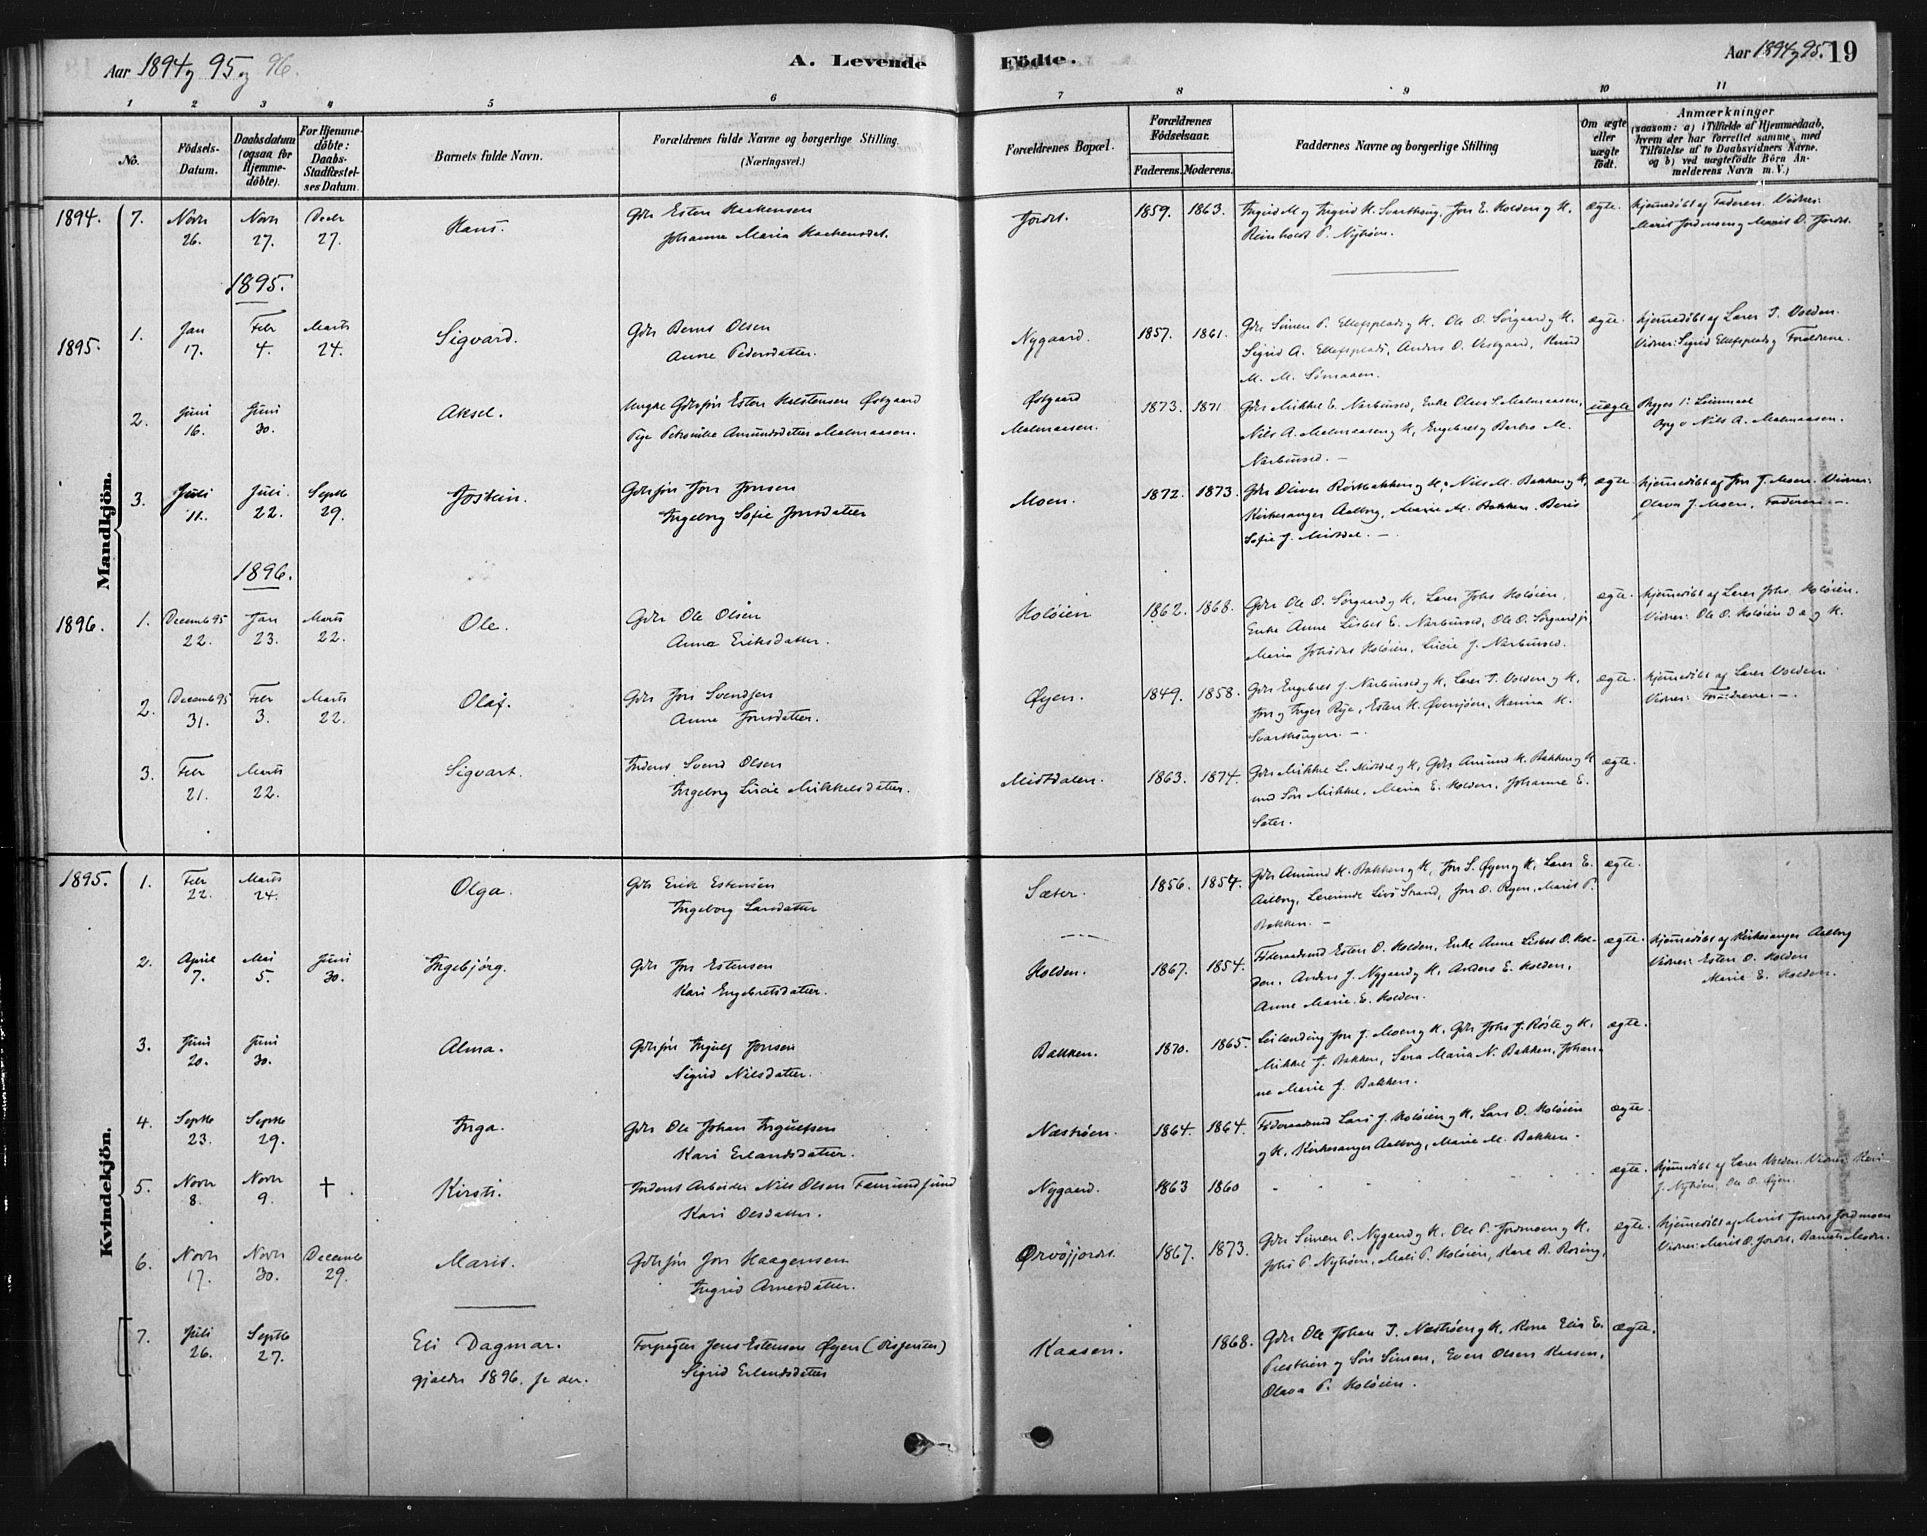 Aar 1894 og 95 og 96. A. Levende Födte. Aar 1894 og 95. 19
1 2 3 4 5 6 7 8 9 10 11
No.
Födsels-Datum.
Daabsdatum (ogsaa for Hjemme-döbte).
For Hjemme-döbte: Daabs-Stadfæstel-ses Datum.
Barnets fulde Navn.
Forældrenes fulde Navne og borgerlige Stilling. (Næringsvei.)
Forældrenes Bopæl.
Forældrenes Födselsaar. Faderens. Moderens.
Faddernes Navne og borgerlige Stilling
Om ægte eller uægte födt.
Anmærkninger (saasom: a) i Tilfælde af Hjemmedaab, hvem der har forrettet samme, med Tilföielse af to Daabsvidners Navne, og b) ved uægtefödte Börn An-melderens Navn m. V.)
Mandkjön.
1894. 7. Novr 26. Novr 27. Decbr 27. Hans.
Gdr Esten Hackensen
Johanne Maria Hackensdat.
Jordet. 1859. 1863.
Ingrid M og Ingrid H. Svarthaug, Jon E. Holden og K.
Reinholdt P. Nyhöen.
ægte. Hjemmedöbt af Faderen. Vidner:
1895.
1895. 1. Jan 17. Febr 4. Marts 24. Sigvard.
Gdr Bernt Olsen
Anne Pedersdatter.
Nygaard. 1857. 1861.
Gdr Simen P. Ellefsplads og K. Ole O. Sörgaard og K.
Sigrid A. Ellefsplads, Anders O. Vestgaard, Knud
M. M. Sömaaen.
ægte. Hjemmedöbt af Lærer T. Volden.
Vidner: Sigrid Ellefsplads og Forældrene.
2. Juni 16. Juni 30. Aksel.
Ungkr Gdrsön Esten Halstensen Østgaard
Pige Petronille Amundsdatter Malmaasen.
Østgaard
Malmaasen. 1873. 1871
Gdr Mikkel E. Narbuvod, Enke Olava S. Malmaasen,
Nils A. Malmaasen og K, Engebret og Barbro M.
Narbuvod. –
uægte
Opg. v Nils A. Malmaasen.
3. Juli 11. Juli 22. Septb 29. Jostein.
Gdrsön Jon Jonsen
Ingeborg Sofie Jonsdatter
Moen. 1872. 1873.
Gdr Oliver Röstbakken og K, Nils M. Bakken og K,
Kirkesanger Aalborg, Marie M. Bakken, Berit
Sofie J. Midtdal. –
ægte Hjemmedöbt af Jon J. Moen. Vidner:
Olava J. Moen, Faderen. –
1896.
1896. 1. Decemb 95 22. Jan 23. Marts 22. Ole.
Gdr Ole Olsen
Anna Eriksdatter.
Holöien 1862. 1868.
Gdr Ole O. Sörgaard og K, Lærer Johs Holöien,
Enke Anne Lisbet E. Narbuvod, Ole O. Sörgaard jr
Maria Johsdat Holöien, Lucie J. Narbuvod.
ægte. Hjemmedöbt af Lærer Johs. Holöien.
Vidner: Ole O. Holöien d æ og K.
2. Decemb 95 31. Febr 3. Marts 22. Olaf.
Gdr Jon Svendsen
Anne Jonsdatter.
Øyen. 1849. 1858.
Gdr Engebret J. Narbuvod og K, Lærer T. Volden og K,
Jon og Inger Rye, Esten H. Øversjöen, Hanna H.
Svarthaugen. –
ægte. Hjemmedöbt af Lærer Volden.
Vidner: Forældrene. –
3. Febr 21. Marts 22. Sigvart.
Inderst Svend Olsen
Ingeborg Lucie Mikkelsdatter.
Midtdalen. 1863. 1874.
Gdr Mikkel L. Midtdal og K, Gdr Amund H. Bakken og K
med Sön Mikkel, Maria E. Holden, Johanne E.
Sæter.
ægte.
Kvindekjön.
1895. 1. Febr 22. Marts 24. Olga.
Gdr Erik Estensen
Ingeborg Larsdatter
Sæter. 1856. 1854.
Gdr Amund H. Bakken og K, Jon S. Øyen og K, Lærer E.
Aalborg, Lærerinde Livs Strand, Jon O. Ryen, Marit P.
Bakken. –
ægte.
2. April 7. Mai 5. Juni 30. Ingebjörg.
Gdr Jon Estensen
Kari Engebretsdatter.
Holden. 1867. 1854.
Föderaadsmd Esten O. Holden, Enke Anne Lisbet O. Hol-
den, Anders J. Nygaard og K, Anders E. Holden,
Anne Marie E. Holden.
ægte. Hjemmedöbt af Kirkesanger Aalborg
Vidner: Esten O. Holden
Marie E. Holden.
3. Juni 20. Juni 30. Alma.
Gdrsön Ingulf Jonsen
Sigrid Nilsdatter.
Bakken. 1870. 1865.
Leilending Jon J. Moen og K, Gdr Johs J. Röste og K,
Mikkel J. Bakken, Sara Maria N. Bakken, Johan-
ne Marie J. Bakken.
ægte.
4. Septb 23. Septb 29. Inga.
Gdr Ole Johan Ingulfsen
Kari Erlandsdatter.
Næsthöen. 1864. 1864.
Föderaadsmd Lars J. Holöien og K, Lars O. Holöien
og K, Kirkesanger Aalborg, Marie M. Bakken.
ægte.
5. Novr 8. Novr 9. † Kirsti.
Inderst Arbeider Nils Olsen Fæmundsund
Kari Olsdatter.
Nygaard. 1863 1860
ægte. Hjemmedöbt af Lærer Volden. Vidner: Kari
J. Nyhöen, Ole O. Øyen.
6. Novr 17. Novr 30. Decemb 29. Marit.
Gdrsön Jon Haagensen
Ingrid Arnesdatter.
Ørvöjjordet. 1867. 1873.
Gdr Simen P. Nygaard og K, Ole P. Jordmoen og K,
Johs P. Nyhöen, Mali P. Holöien, Kare R. Rösing.
ægte.
7. Juli 26. Septb 27. Eli Dagmar.
gjælder 1896, se der.
Forpagter Jens Estensen Øyen
Sigrid Erlandsdatter
Kaasen. 1868.
Gdr Ole Johan I. Næsthöen og K, Kone Elis E.
og Sön Simen, Even Olsen Kaasen,
Olava P. Holöien.
ægte.